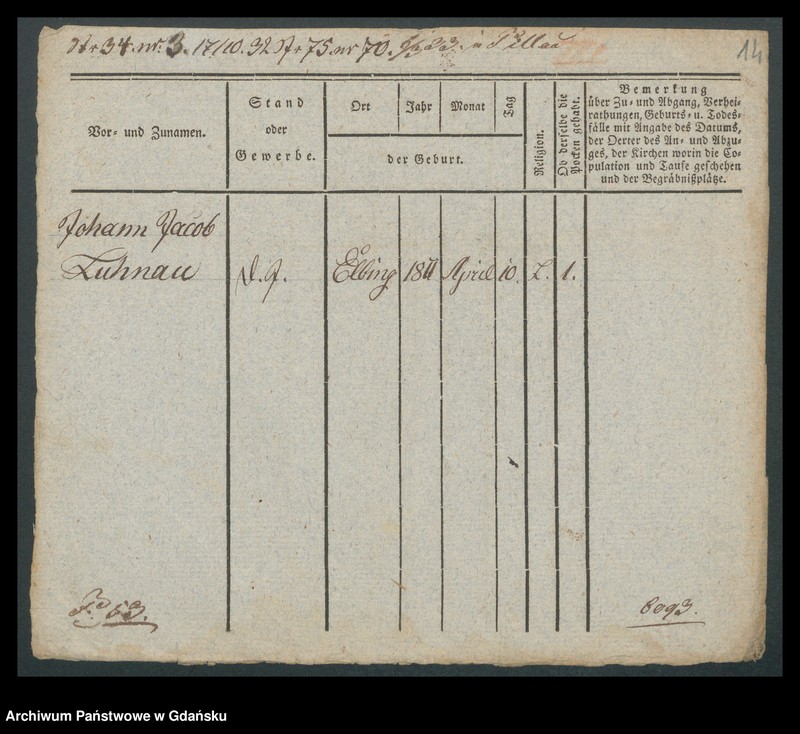 Nr 34. nr. 3. 17/10. 32 Nr 75. nr 70. 33. in Pillau
14
Vor- und Zunamen.
Stand
oder
Gewerbe.
Ort
Jahr
Monat
Tag
der Geburt.
Religion.
Ob derselbe die
Pocken gehabt.
Bemerkung
über Zu- und Abgang, Verhei-
rathungen, Geburts- u. Todes-
fälle mit Angabe des Datums,
der Oerter des An- und Abzu-
ges, der Kirchen worin die Co-
pulation und Taufe geschehen
und der Begräbnißplätze.
Johann Jacob
Luhnau
Elbing 1811 April 10. L. 1.
63.
8093.
Archiwum Państwowe w Gdańsku